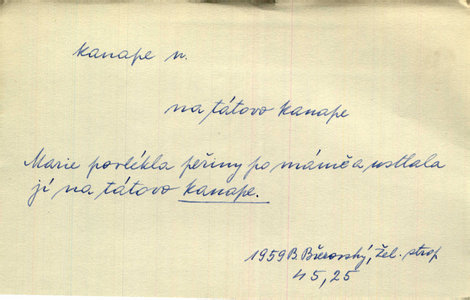 kanape n.
na tátovo kanape
Marie povlékla peřiny po mámě a ustlala
jí na tátovo kanape.
1959 B. Březovský, Žel. strop
45,25